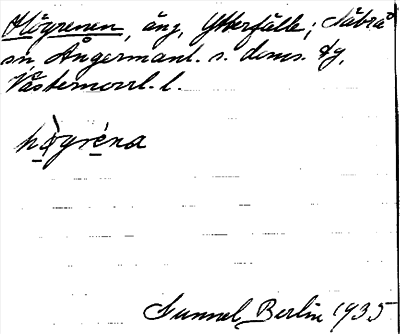 Högrenen, äng, Ytterfälle; Nåbra
sn, Ångermanl. s. doms. tg,
Västernorrl. l.
högréna
Gunnel Berlin 1935